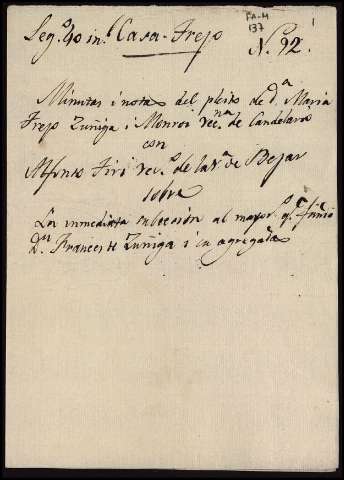 PA-M
137
1
Leg.º 40 in.l Casa-Trejo
N. 92.
Minutas i notas del pleito de d.ª Maria
Trejo Zuñiga i Monroi vec.na de Candelario
con
Alfonso Tiri vec.º de la v.ª de Bejar
sobre
La inmediata subcesion al mayor.go q.e fundó
D.n Frances de Zuñiga i su agregado